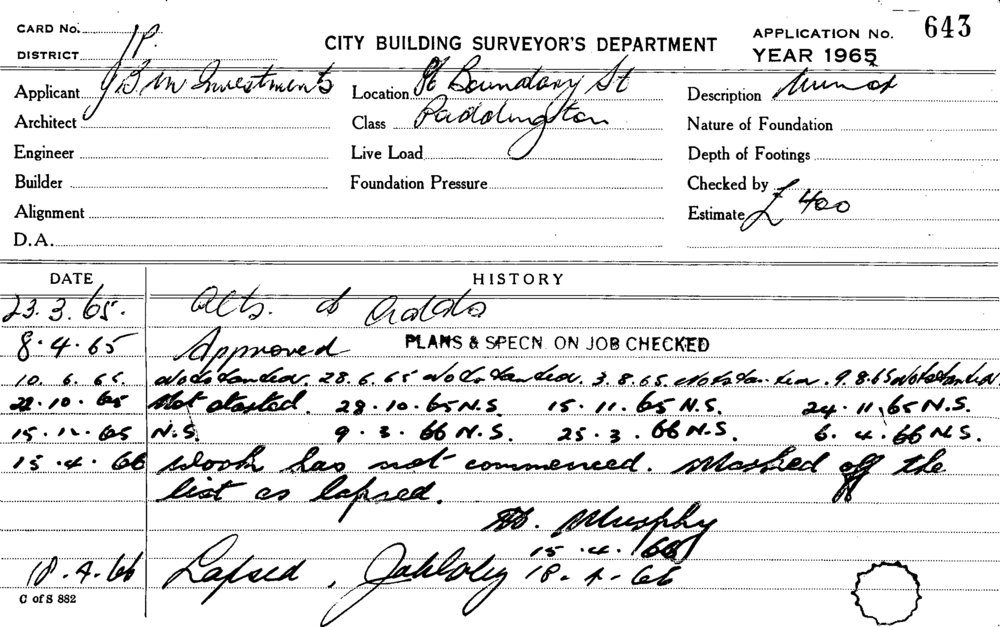 CARD No.
DISTRICT
CITY BUILDING SURVEYOR'S DEPARTMENT
APPLICATION No. 643
YEAR 1965
Applicant J B M Investments
Location Boundary St
Description Minor
Architect
Class Paddington
Nature of Foundation
Engineer
Live Load
Depth of Footings
Builder
Foundation Pressure
Checked by
Alignment
Estimate £ 400
D.A.
DATE HISTORY
23.3.65. Alts. & Adds
8.4.65 Approved PLANS & SPECN. ON JOB CHECKED
10.6.65. Not Started. 28.6.65 Not Started. 3.8.65. Not Started. 9.8.65 Not Started
22.10.65 Not started. 28.10.65 N.S. 15.11.65 N.S. 24.11.65 N.S.
15.12.65 N.S. 9.3.66 N.S. 25.3.66 N.S. 6.4.66 N.S.
15.4.66 Work has not commenced. Marked off the
list as lapsed.
Murphy
15.4.66
18.4.66 Lapsed, 18.4.66
C of S 882